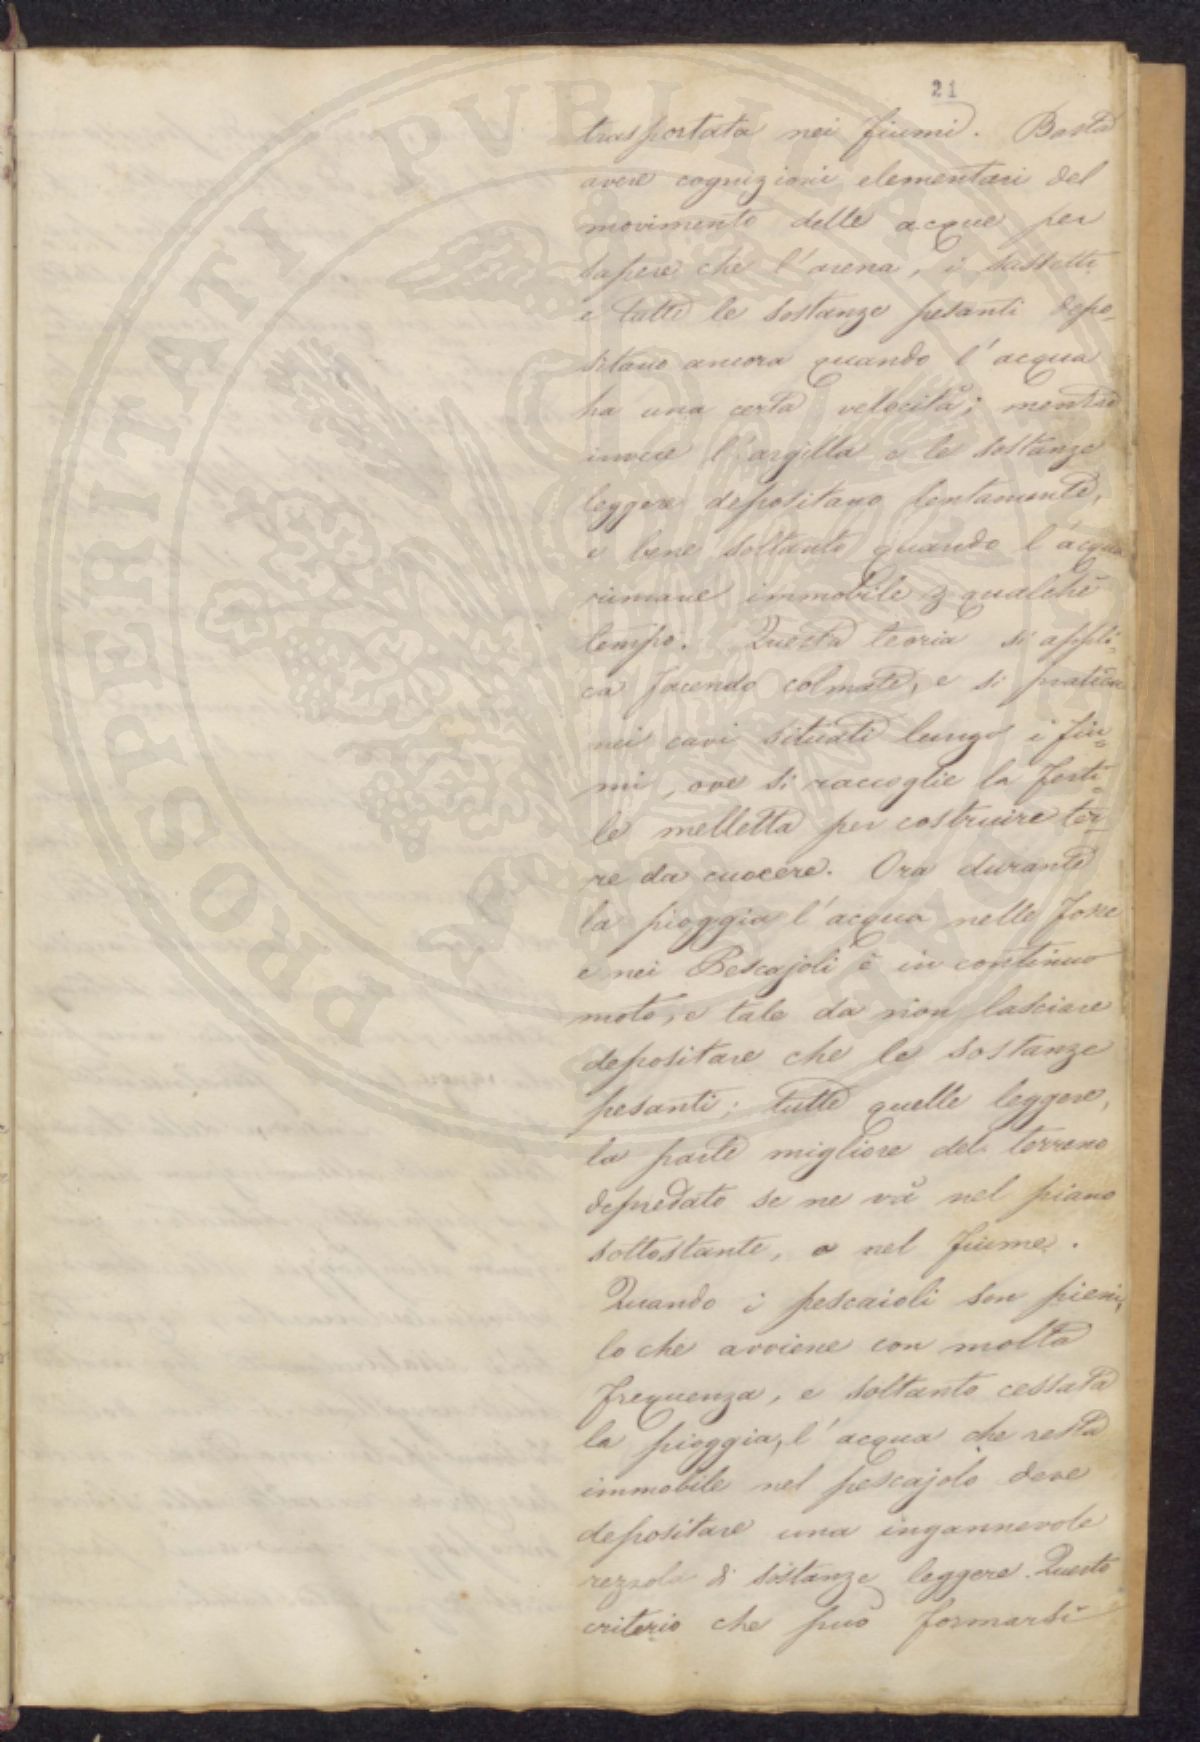 21
trasportata nei fiumi. Basta
avere cognizioni elementari del
movimento delle acque per
sapere che l'arena, i sassetti
e tutte le sostanze pesanti depo-
sitano ancora quando l'acqua
ha una certa velocità; mentre
invece l'argilla e le sostanze
leggere depositano lentamente,
e bene soltanto quando l'acqua
rimane immobile qualche
tempo. Questa teoria si appli-
ca facendo colmate, e si pratica
nei cavi situati lungo i fiu-
mi, ove si raccoglie la ferti-
le melletta per costruire ter-
re da cuocere. Ora durante
la pioggia l'acqua nelle fosse
e nei Pescajoli è in continuo
moto, e tale da non lasciare
depositare che le sostanze
pesanti; tutte quelle leggere,
la parte migliore del terreno
depredato se ne và nel piano
sottostante, o nel fiume.
Quando i pescaioli son pieni,
lo che avviene con molta
frequenza, e soltanto cessata
la pioggia, l'acqua che resta
immobile nel pescajolo deve
depositare una ingannevole
di sostanze leggere. Questo
criterio che può formarsi
PROSPERITATI PVBLICAE AVGENDAE